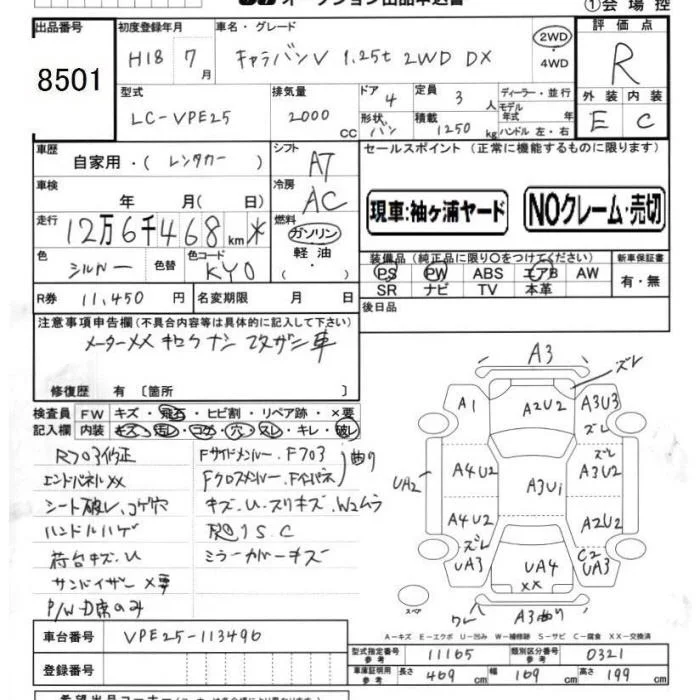 オークション出品申込書
①会場控
出品番号 8501
初度登録年月 H18 7月
車名・グレード キャラバンV 1.25t 2WD DX
2WD・4WD
評価点 R
外装 E 内装 C
型式 LC-VPE25
排気量 2000 CC
ドア 4 形状 バン
定員 3人 積載 1250 kg
ディーラー・並行
モデル年式 年式
ハンドル 左・右
車歴 自家用・(レンタカー)
シフト AT
セールスポイント(正常に機能するものに限ります)
車検 年 月(日)
冷房 AC
現車:袖ヶ浦ヤード
NOクレーム・売切
走行 12万6千468km*
燃料 ガソリン・軽油・( )
色 シルバー 色替 色コード KY0
装備品(純正品に限り○をつけてください)
PS PW ABS エアB AW
SR ナビ TV 本革
新車保証書 有・無
R券 11,450円 名変期限 月 日
後日品
注意事項申告欄(不具合内容等は具体的に記入して下さい)
メーターXX キロクナシ 改ザン車
修復歴 有〔箇所 〕
検査員記入欄
FW キズ・飛石・ヒビ割・リペア跡・×要
内装 キズ・汚レ・コゲ・穴・スレ・キレ・破レ
R703修正
エンドパネルXX
シート破レ、コゲ穴
ハンドルハゲ
荷台キズ、U
サンバイザー×要
P/W D席のみ
Fサイドメンバー、F703
Fクロスメンバー、Fインパネ
曲り
キズ、U、スリキズ、W2ムラ
S、C
ミラーカバーキズ
A3
ズレ
A1 A2U2 A3U3
ズレ
ズレ
UA2 A4U2 A3U1 A3U2
A4U2 A2U2
ズレ
UA3 UA4 XX C2 UA3
スペア
ワレ A3曲り
A-キズ E-エクボ U-凹み W-補修跡 S-サビ C-腐食 XX-交換済
車台番号 VPE25-113496
型式指定番号 参考 11165
類別区分番号 参考 0321
登録番号
車庫証明用 参考 長さ 469cm 幅 169cm 高さ 199cm
希望出品コーナー